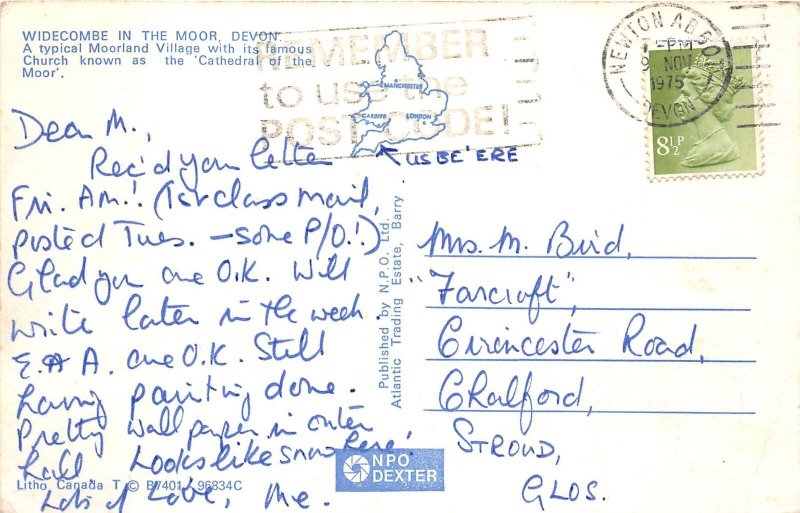 WIDECOMBE IN THE MOOR, DEVON.
A typical Moorland Village with its famous
Church known as the 'Cathedral of the
Moor'.
REMEMBER
to use the
POST CODE!
MANCHESTER
CARDIFF LONDON
NEWTON ABBOT
NOV
1975
DEVON
8½P
Dear M.,
Rec'd your letter
← US BE 'ERE
Fri. Am.! (1st class mail,
posted Tues. - some P/O.!)
Glad you are O.K. Will
write later in the week.
E. & A. are O.K. Still
having painting done.
Pretty wall paper in outer
hall. Looks like snow here!
Lots of Love, Me.
Published by N.P.O. Ltd.
Atlantic Trading Estate, Barry
Mrs. M. Bird,
"Farcroft",
Cirencester Road,
Chalford,
STROUD,
GLOS.
NPO
DEXTER
Litho Canada T © B7401 96834C